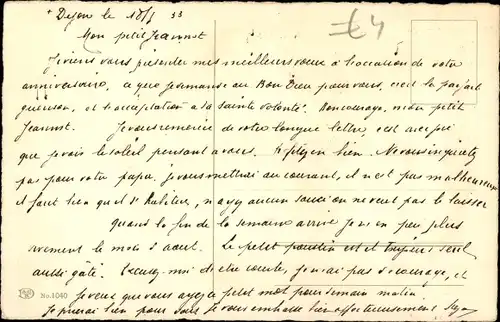 Dijon le 18/1 33
£4
Mon petit Jeannot
Je viens vous présenter mes meilleurs vœux à l'occasion de votre
anniversaire, ce que je demande au Bon Dieu pour vous, c'est la parfait
guérison, et l'acceptation à sa sainte volonté. Bon courage, mon petit
Jeannot. Je vous remercie de votre longue lettre, c'est avec
que je vais le soleil pensant à vous. bien. Ne vous inquiétez
pas pour votre papa, je vous mettrai au courant, il n'est pas malheureux
il faut bien que il s'habitue, n'ayez aucun souci on ne veut pas le laisser
quand la fin de la semaine arrive je suis un peu plus
le mois d'août. Le petit est toujours seul
aussi gâté. Excusez-moi d'être courte, je n'ai pas de courage, et
je veux que vous ayez ce petit mot pour demain matin
No. 1040
Je prierai bien pour vous je vous embrasse bien affectueusement